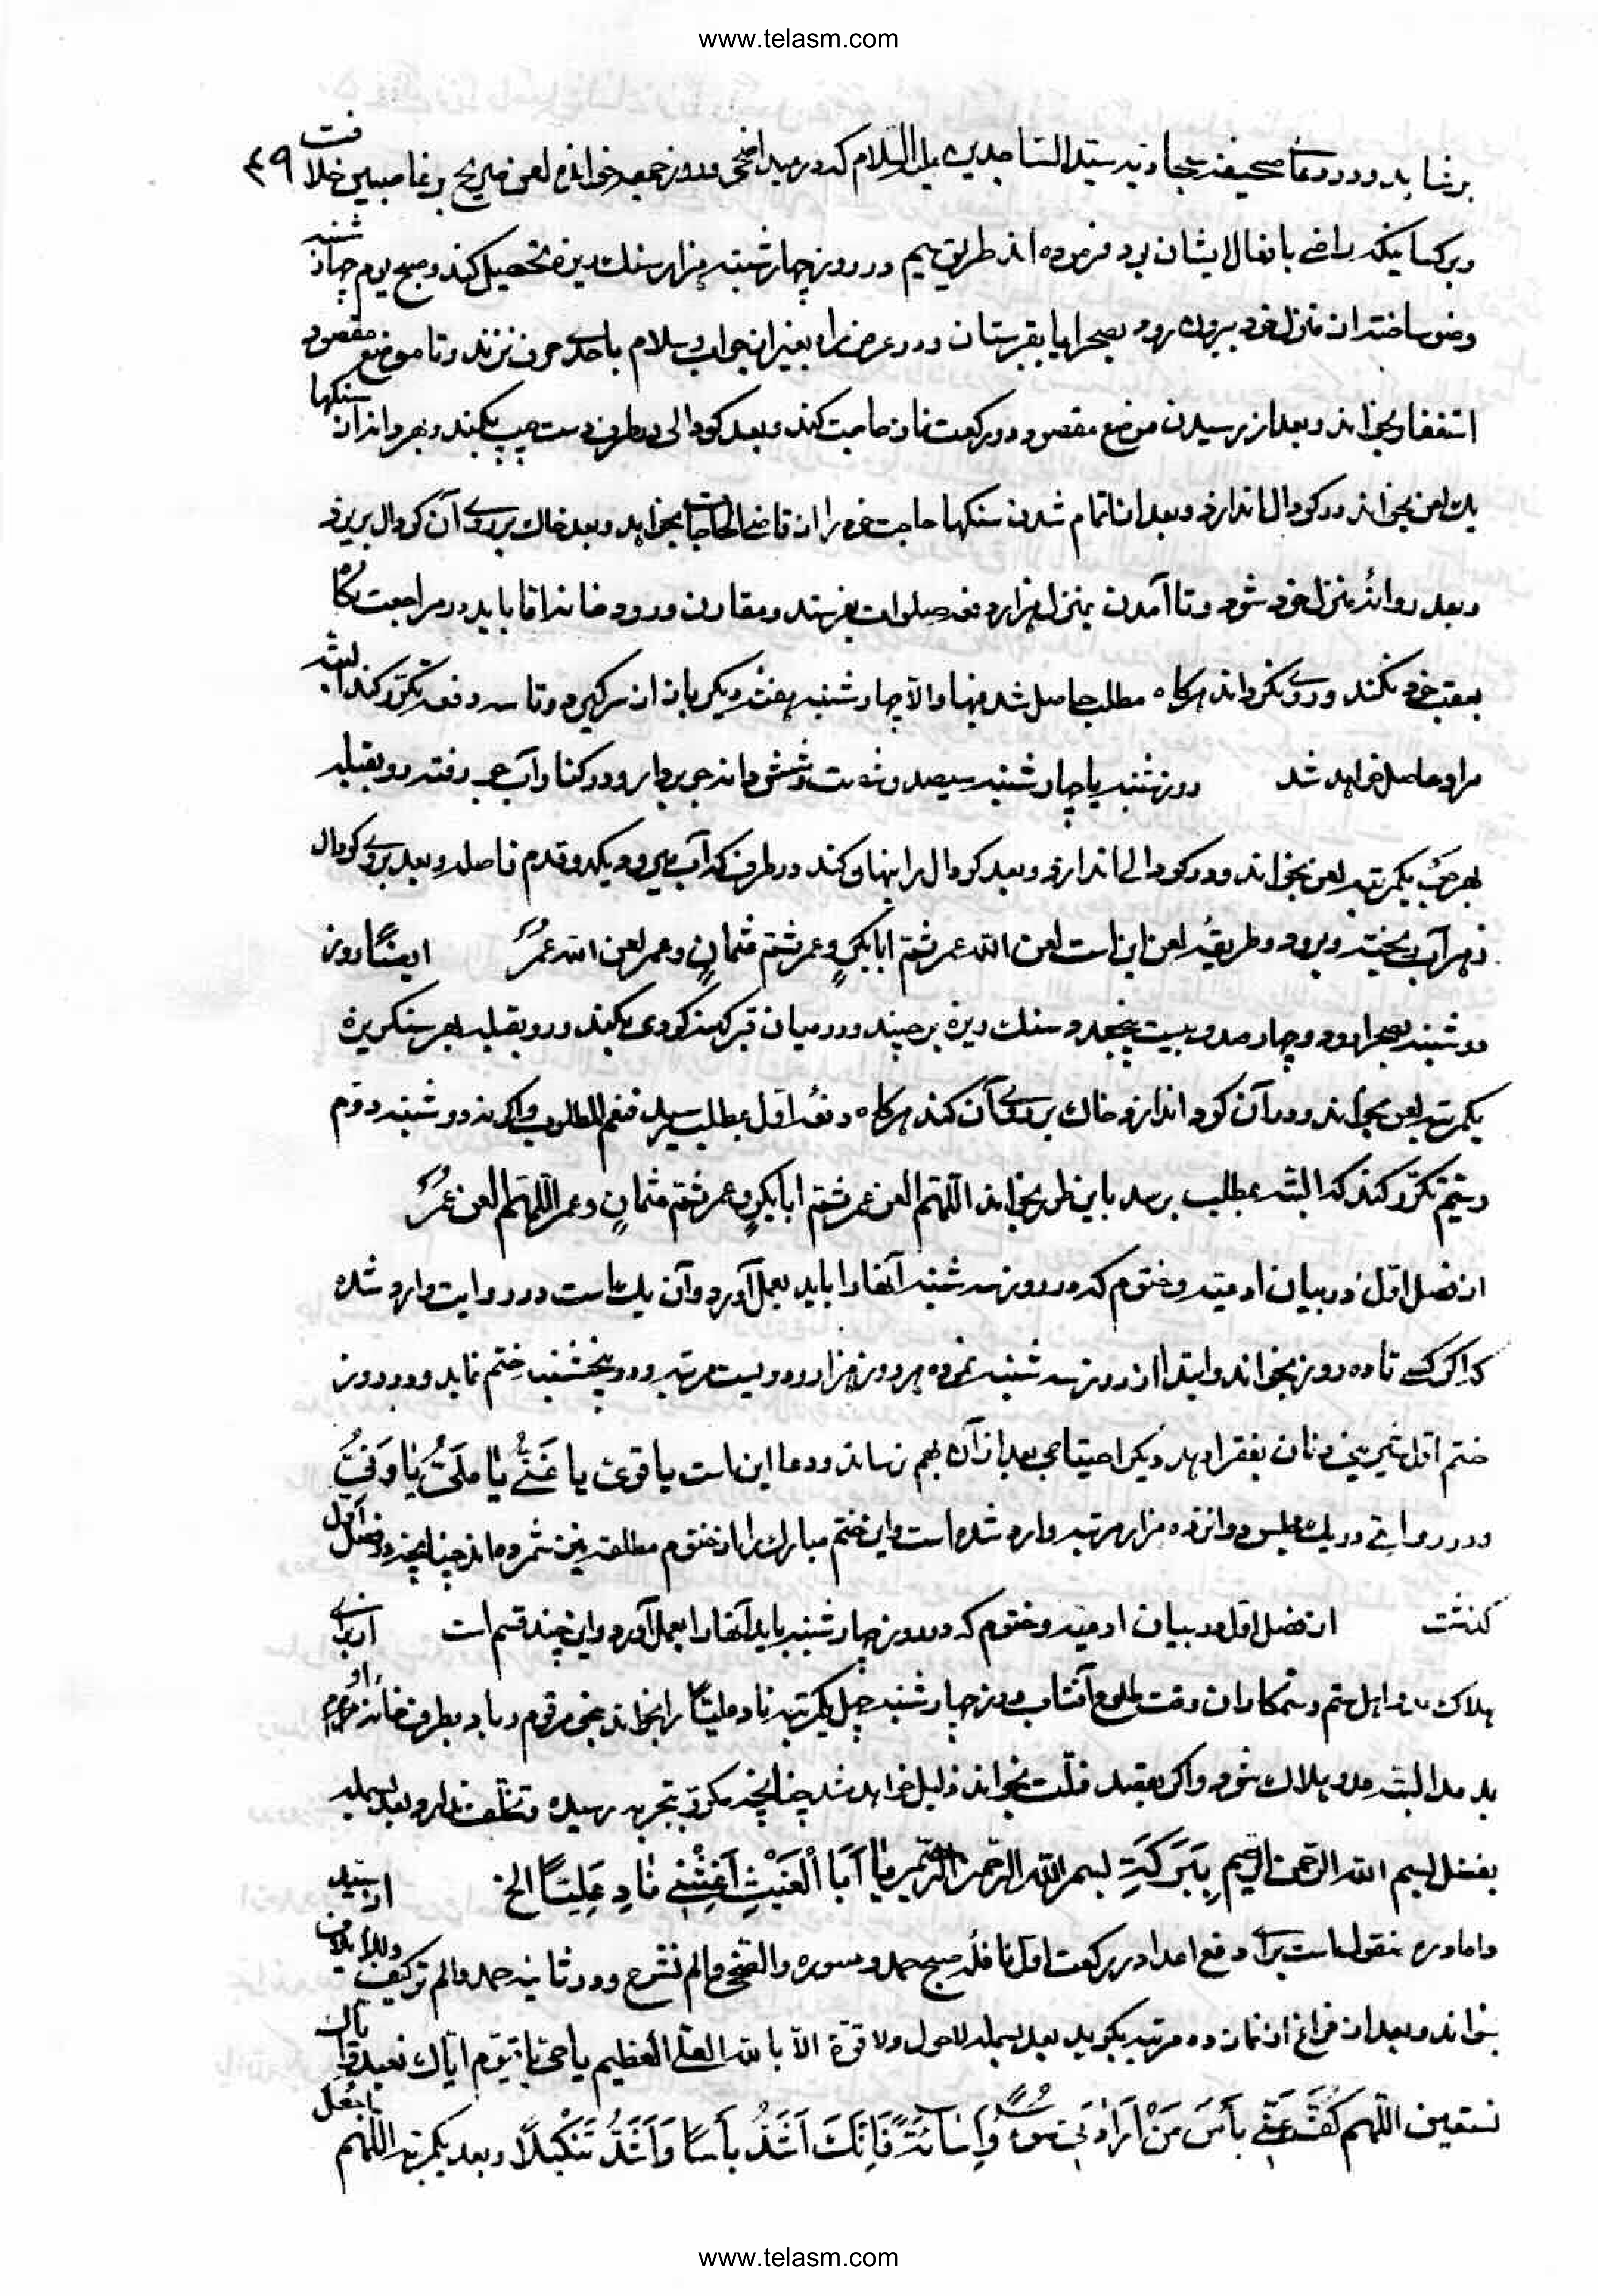 www.telasm.com
برشاید و در دعای صحیفه سجادیه سید الساجدین علیه السلام که در عید اضحی و روز جمعه خوانده لعن صریح بر غاصبین خلافت ۴۹
و بر کسانیکه راضی بافعال ایشان بود فرموده اند طریق سیم در روز چهارشنبه هزار سنك ریزه تحصیل کند و صبح یوم چهار شنبه
وضو ساخته از منزل خود بیرون رود بصحرا یا بقبرستان و در عرض راه بغیر از جواب سلام باحدی حرف نزند و تا موضع مقصود
استغفار بخواند و بعد از رسیدن موضع مقصود دو رکعت نماز حاجت کند و بعد کودالی در طرف دست چپ بکند و بهر دانه از آن سنکها
یك لعن بخواند در کودال اندازد و بعد از اتمام شدن سنکها حاجت خود را از قاضی الحاجات بخواهد و بعد خاك بر روی آن کودال بریزد
و بعد روانه منزل خود شود و تا آمدن بمنزل هزار دفعه صلوات بفرستد و مقارن ورود خانه اما باید در مراجعت نکاه
بعقب خود نکند و روی نکرداند هرکاه مطلب حاصل شد فبها والا چهار شنبه هفته دیکر باز از سر کیرد و تا سه دفعه تکرر کند البته
مراد حاصل خواهد شد روز شنبه یا چهار شنبه سیصد و شصت و شش دانه جو بردارد و در کنار آب جو رفته رو بقبله
بهر جو یکمرتبه لعن بخواند و در کودالی اندازد و بعد کودال را پنهان کند در طرف که آب میرود یکد و قدم فاصله و بعد بروی کودال
زهر آب ریخته و برود و طریقه لعن این است لعن الله عمر ثم ابابکر و عمر ثم عثمان و عمر لعن الله عمر ایضا روز
دوشنبه بصحرا رود و چهار صد و بیست پنجعدد سنك ریزه برچیند و در میان قبر کهنه کودی بکند و رو بقبله بهر سنکریزه
یکمرتبه لعن بخواند و در آن کود اندازد و خاك بر روی آن کند هرکاه دفعه اول بمطلب رسید فنعم المطلوب و اکر نه دوشنبه دوم
و سیم تکرر کند که البته بمطلب برسد باین طریق بخواند اللهم العن عمر ثم ابابکر و عمر ثم عثمان و عمر اللهم العن عمر
از فصل اول در بیان ادعیه و ختوم که در روز سه شنبه آنها را باید بعمل آورد و آن یك است در روایت وارد شده
که اکر کسی تا ده روز بخواند و ابتدا از روز سه شنبه نموده هر روز هزار و دویست مرتبه و در پنجشنبه ختم نماید و در روز
ختم اقلا شیرینی و نان بفقرا دهد دیکر احتیاجی بعد از آن بهم نرساند و دعا این است یا قوی یا غنی یا ملی یا وفی
و در روایتی در یك مجلس دوازده هزار مرتبه وارد شده است و این ختم مبارك را از ختوم مطلقه نیز شمرده اند چنانچه در فصل اول
کذشت از فصل اول در بیان ادعیه و ختوم که در روز چهار شنبه باید آنها را بعمل آورد و این چند قسم است از برای
هلاکت عدو اهل ستم و ستمکاران وقت طلوع آفتاب روز چهار شنبه چهل یکمرتبه ناد علیا را بخواند بنحو مرقوم و باد بطرف خانه او
بدمد البته عدو هلاك شود و اکر بقصد ذلت بخواند ذلیل خواهد شد چنانچه مکرر بتجربه رسیده و تخلف ندارد و بعد بسمله
بفضل بسم الله الرحمن الرحیم ببركة بسم الله الرحمن الرحیم یا ابا الغیث اغثنی ناد علیا الخ از سید
داماد ره منقول است برای دفع اعدا در رکعت اول نافله صبح حمد و سوره والضحی و الم نشرح و در ثانیه حمد و الم تر کیف و لایلاف
بخواند و بعد از فراغ از نماز ده مرتبه بکوید بعد بسمله لا حول ولا قوة الا بالله العلی العظیم یا حی یا قیوم ایاك نعبد و ایاك
نستعین اللهم کف عنی بأس من اراد بی سوء و اسائة فانك اشد بأسا و اشد تنکیلا و بعد یکمرتبه اللهم اجعل
www.telasm.com